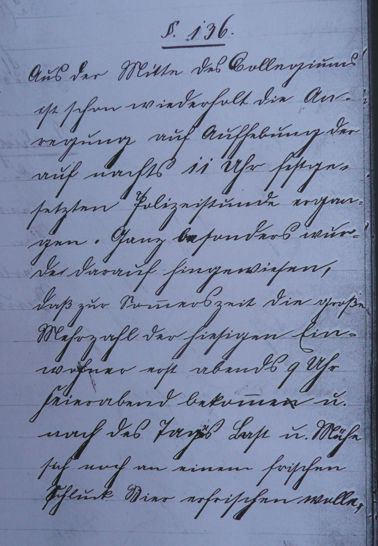 §. 136.
Aus der Mitte des Collegiums
ist schon wiederholt die An-
regung auf Aufhebung der
auf nachts 11 Uhr festge-
setzten Polizeistunde ergan-
gen. Ganz besonders wur-
de darauf hingewiesen,
daß zur Sommerszeit die große
Mehrzahl der hiesigen Ein-
wohner erst abends 9 Uhr
Feierabend bekommen u.
nach des Tages Last u. Mühe
sich noch an einem frischen
Schluck Bier erfrischen wolle,